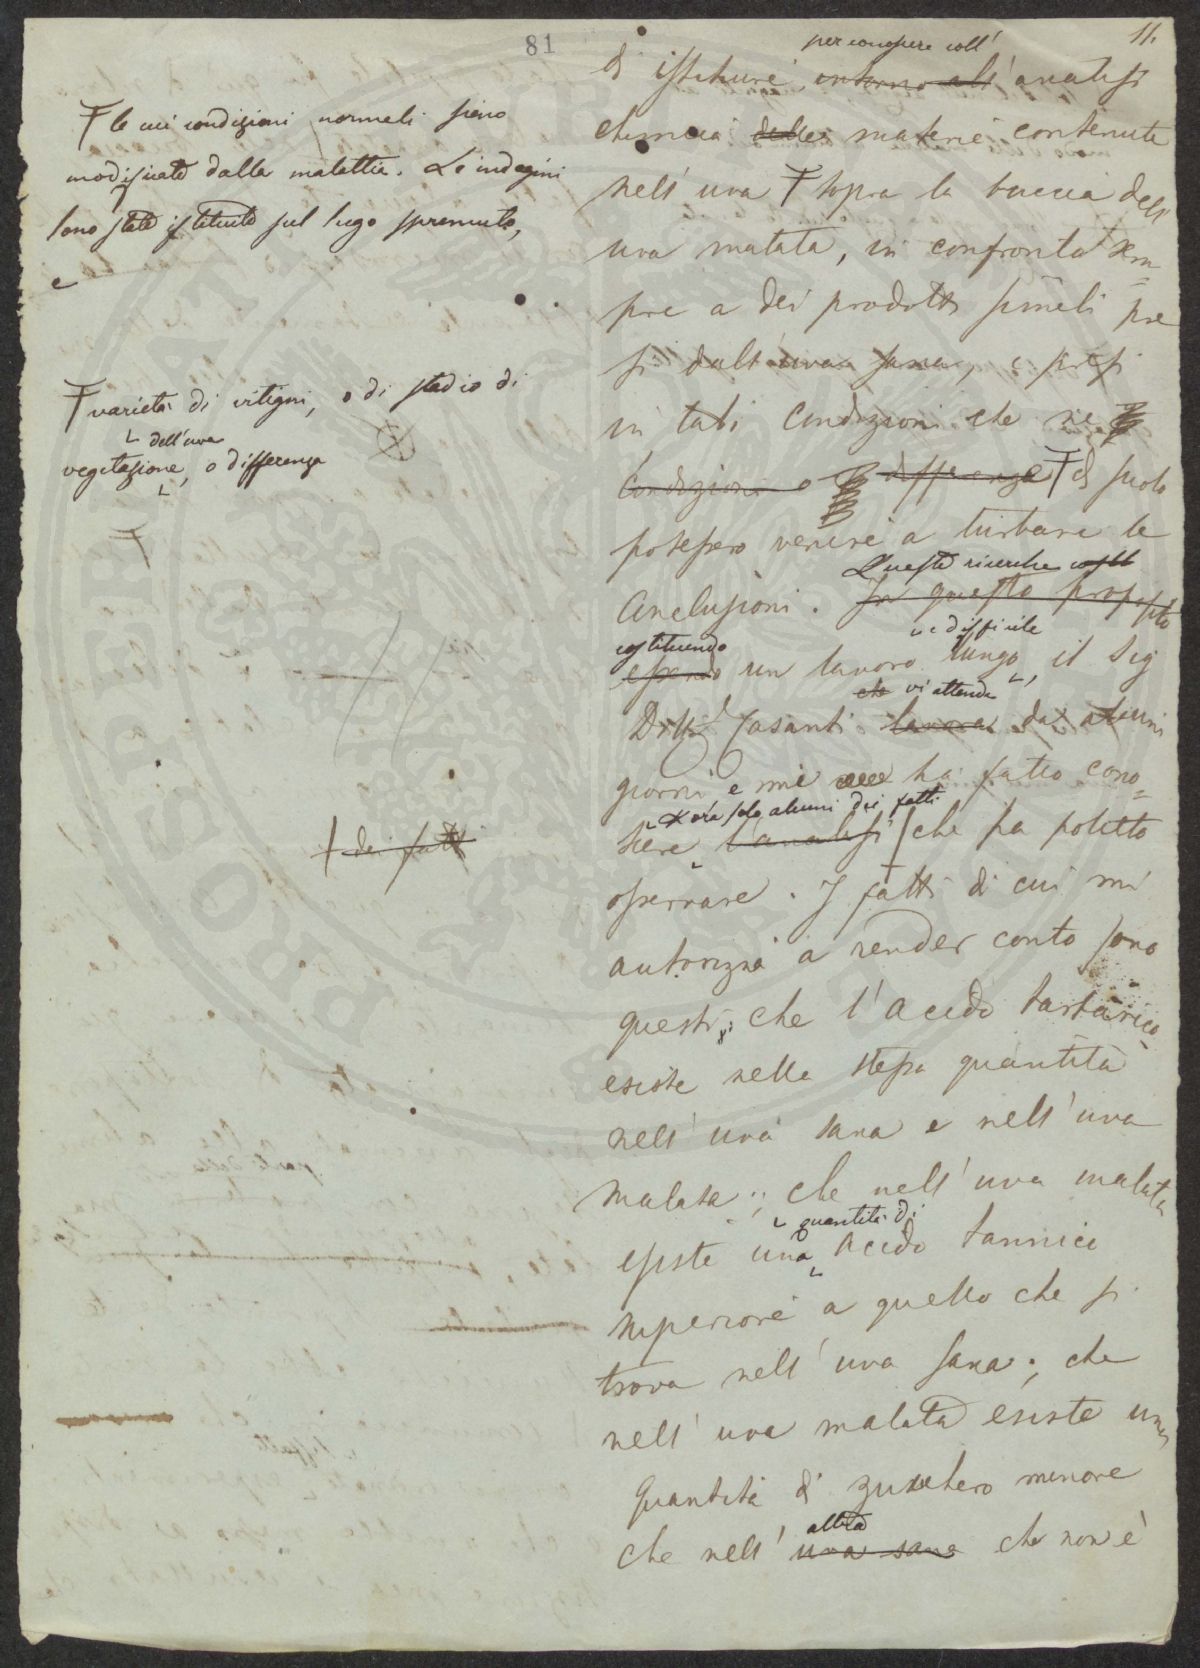 81
11.
per conoscere coll'
di istituire intorno all' analisi
chimica delle materie contenute
nell' uva T sopra la buccia dell'
uva malata, in confronto sem=
pre a dei prodotti simili pre
si dall' uva sana, e presi
in tali Condizioni che ne
Condizioni o differenze T di suolo
potessero venire a turbare le
Conclusioni. In questo proposito
Queste ricerche
costituendo
essendo un lavoro lungo, il Sig
e difficile
Dott. Casanti lavora da alcuni
che vi attende
giorni e mi ha fatto cono=
scere l'analisi che ha potuto
ora solo alcuni dei fatti
osservare. I fatti di cui mi
autorizza a render conto sono
questi: che l'acido tartarico
esiste nella stessa quantità
nell' uva sana e nell' uva
malata; che nell' uva malata
quantità di
esiste una acido tannico
superiore a quello che si
trova nell' uva sana; che
nell' uva malata esiste una
quantità di zucchero minore
che nell' uva sana che non è
altra
T le cui condizioni normali sieno
modificate dalla malattia. Le indagini
sono state istituite sul sugo spremuto,
e
T varietà di vitigni, o di stadio di
dell'uva
vegetazione, o differenza
T
dei fatti